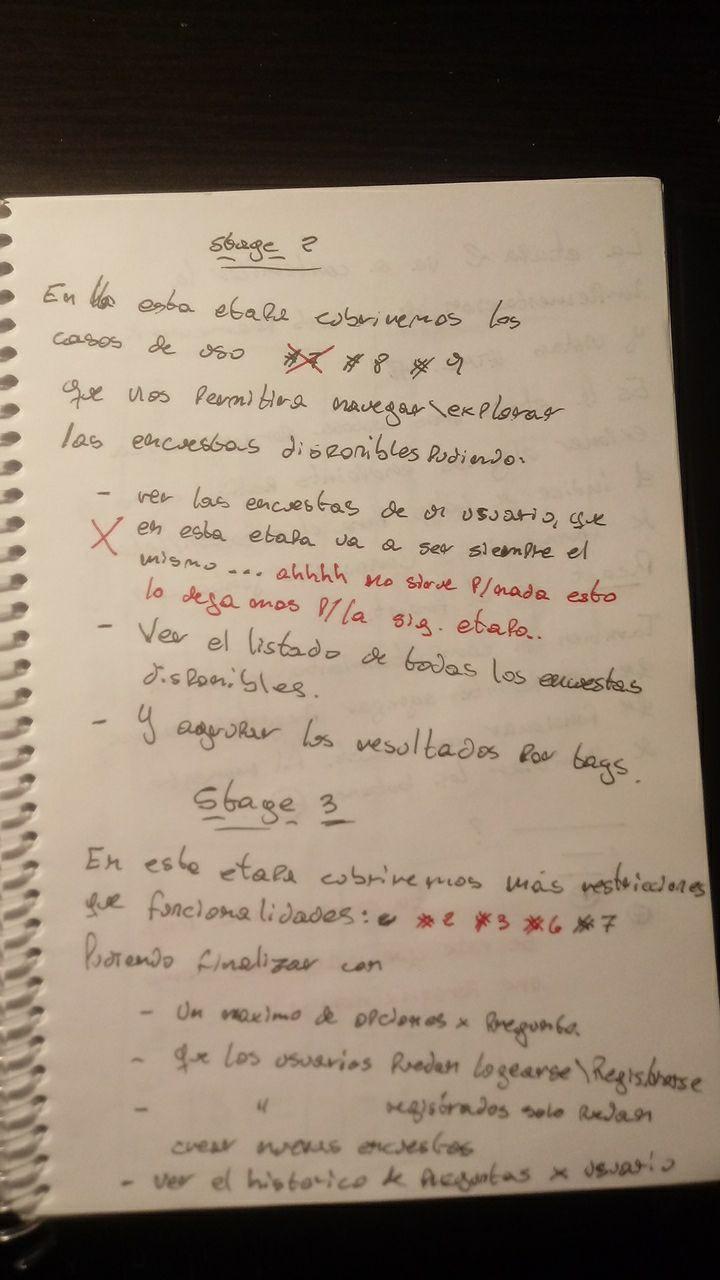 Stage 2
En esta etapa cobriremos los
casos de uso #7 #8 #9
que nos permitira navegar\explorar
las encuestas disponibles pudiendo.
- ver las encuestas de un usuario, que
X en esta etapa va a ser siempre el
mismo... ahhhh no sirve p/nada esto
lo dejamos p/la sig. etapa..
- Ver el listado de todas los encuestas
disponibles.
- Y agrupar los resultados por tags.
Stage 3
En esta etapa cobriremos más restricciones
que funcionalidades: #2 #3 #6 #7
Pudiendo finalizar con
- Un maximo de opciones x pregunta
- que los usuarios puedan logearse\Registrarse
- " registrados solo puedan
crear nuevas encuestas
- ver el historico de preguntas x usuario